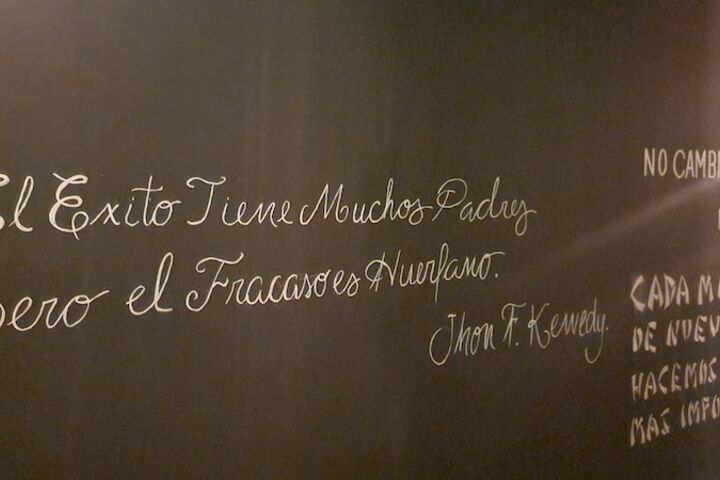 El Exito Tiene Muchos Padres
pero el Fracaso es Huerfano.
Jhon F. Kennedy.
NO CAMB
CADA M
DE NUEV
HACEMOS
MAS IMPO